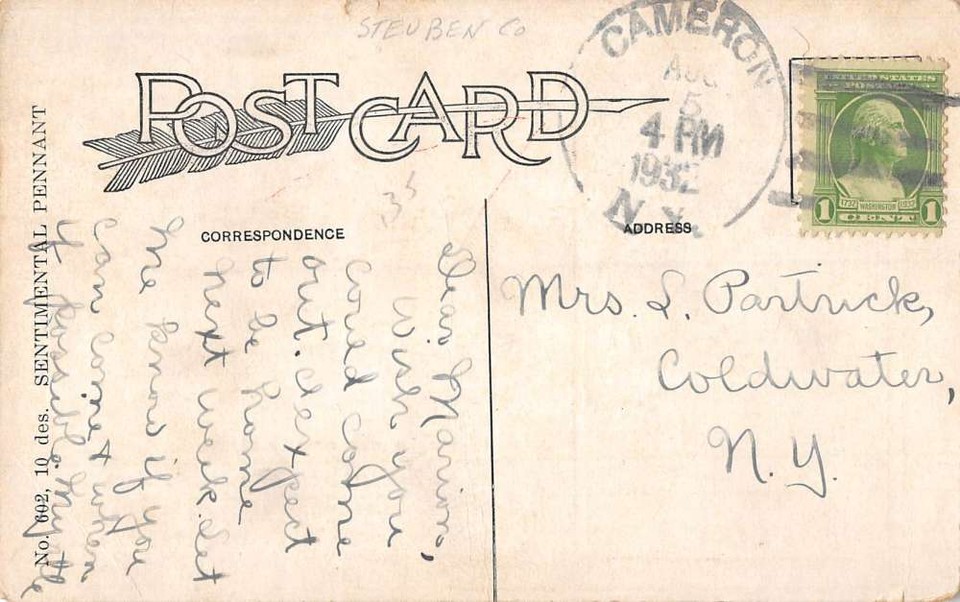 STEUBEN Co
POST CARD
CAMERON
AUG
5
4 PM
1932
N.Y.
UNITED STATES
POSTAGE
1732 WASHINGTON 1932
1 CENT 1
35
CORRESPONDENCE
ADDRESS
Dear Marion,
Wish you
could come
out. I expect
to be home
next week. Let
me know if you
can come & when
if possible. Myrtle
Mrs. S. Partrick,
Coldwater,
N.Y.
No. 602, 10 des. SENTIMENTAL PENNANT